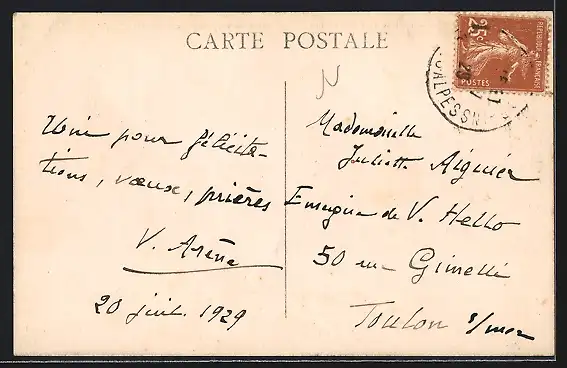 CARTE POSTALE
25c
REPUBLIQUE FRANÇAISE
POSTES
ALPES
N
Unie pour félicita-
tions, vœux, prières
V. Arène
20 juil. 1929
Mademoiselle
Juliette Aiguier
Enseigne de V. Hello
50 rue Gimelli
Toulon s/mer